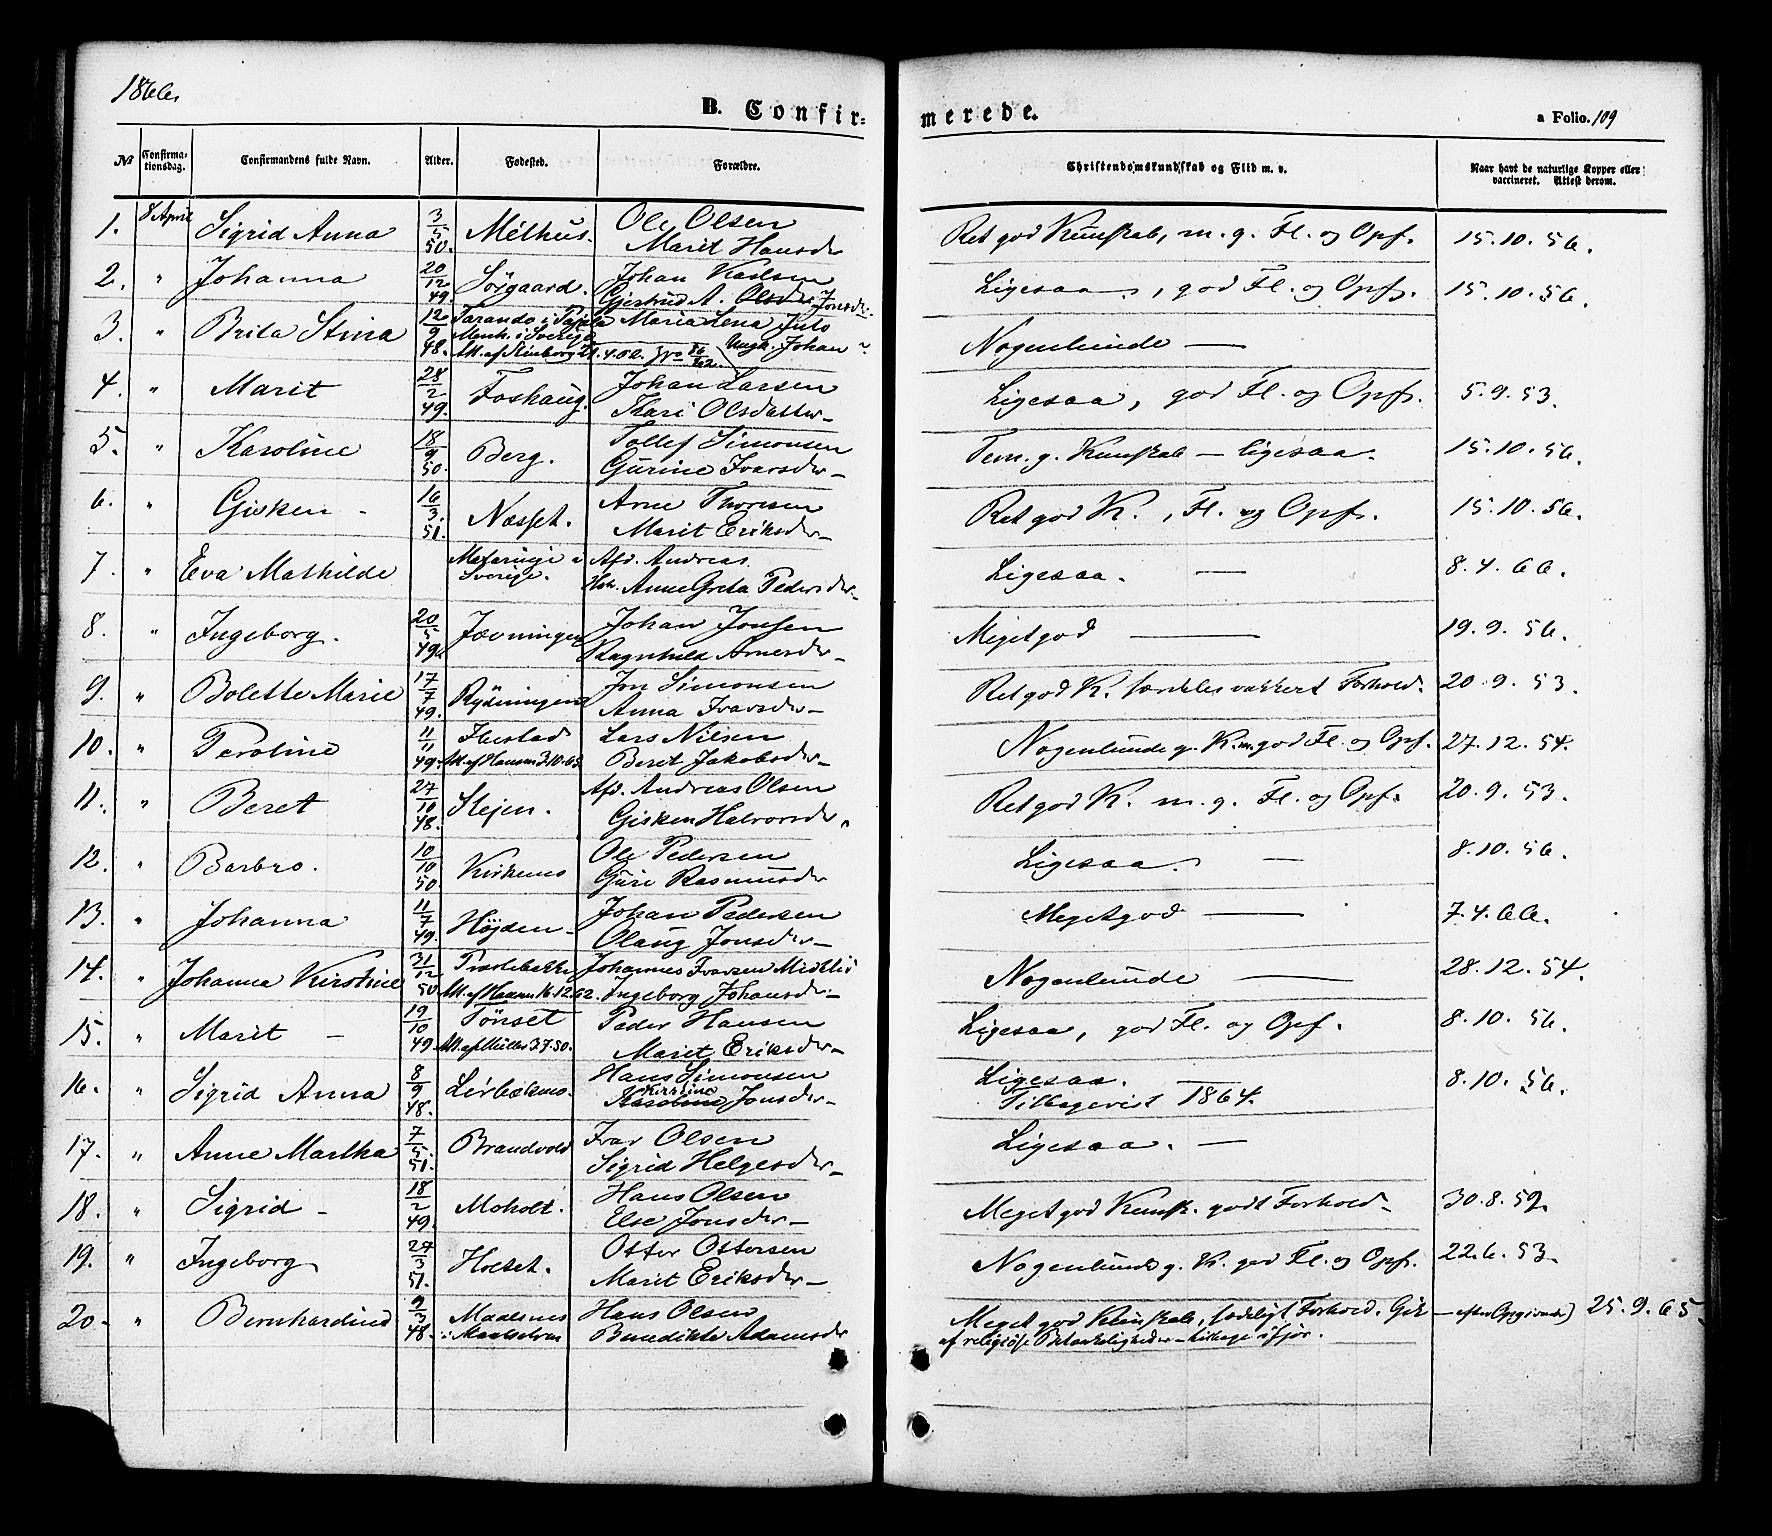 1866.
B. Confirmerede.
a Folio. 109
No
Confirmationsdag.
Confirmandens fulde Navn.
Alder.
Fødested.
Forældre.
Christendomskundskab og Flid m. v.
Naar havt de naturlige Kopper eller vaccineret. Attest derom.
1. 8 April Sigrid Anna 3/5 50. Melhus. Ole Olsen Marit Hansdr Ret god Kunskab, m. g. Fl. og Opf. 15.10.56.
2. " Johanna 20/12 49. Sörgaard. Johan Karlsen Gjertrud A. Jonsdr. Ligesaa, god Fl. og Opf. 15.10.56.
3. " Brita Stina 12/9 48. Tarando i Pajala Menh. i Sverige Maria Lena Ungk. Johan Nogenlunde —
4. " Marit 28/2 49. Foshaug. Johan Larsen Kari Olsdatter Ligesaa, god Fl. og Opf. 5.9.53.
5. " Karoline 18/9 50. Berg. Tollef Simonsen Gurine Ivarsdr Tem. g. Kunskab — ligesaa. 15.10.56.
6. " Gisken - 16/3 51. Næsset. Arne Thoresen Marit Eriksdr Ret god K., Fl. og Opf. 15.10.56.
7. " Eva Mathilde Sverige. Afd. Andreas Anne Greta Pedersdr Ligesaa. — 8.4.66.
8. " Ingeborg. 20/5 49. Jævningen Johan Jonsen Ragnhild Arnesdr Meget god — 19.9.56.
9. " Bolette Marie 17/7 49. Rydningen Jon Simonsen Anna Ivarsdr Ret god K. særdeles vakkert Forhold. 20.9.53.
10. " Peroline 11/11 49. Ibestad Att. af Hansen 3.10.65. Lars Nilsen Beret Jakobsdr Nogenlunde g. K. m. god Fl. og Opf. 27.12.54.
11. " Beret 27/10 48. Skjen. Afd. Andreas Olsen Gisken Halvorsdr. Ret god K. m. g. Fl. og Opf. 20.9.53.
12. " Barbro. 10/10 50. Kirkemo Ole Pedersen Guri Rasmusdr Ligesaa. — 8.10.56.
13. " Johanna 11/7 49. Höjden Johan Pedersen Olaug Jonsdr Meget god — 7.4.66.
14. " Johanna Kirstine 31/12 50. Præstebakke Att. af Hansen 16.12.62. Johannes Ivarsen Ingeborg Johansdr Nogenlunde — 28.12.54.
15. " Marit - 19/10 49. Tönset Att. af Müller 3.7.50. Peder Hansen Marit Eriksdr Ligesaa, god Fl. og Opf. 8.10.56.
16. " Sigrid Anna 8/9 48. Hans Simonsen Kirstine Jonsdr Ligesaa. Tilbagevist 1864. 8.10.56.
17. " Anne Martha 7/5 51. Brandvold Ivar Olsen Sigrid Helgesdr Ligesaa. —
18. " Sigrid - 18/2 49. Moholt. Hans Olsen Else Jonsdr Meget god Kunsk. godt Forhold 30.8.59.
19. " Ingeborg 27/3 51. Holtet. Otter Ottersen Marit Eriksdr Nogenlunde g. K. god Fl. og Opf. 22.6.53.
20. " Bernhardine 9/3 48. Maalsnes Maalselven Hans Olsen Benedikte Adamsdr Meget god Kunskab, Forhold. Gik — efter Opgivende) 25.9.65
af religiöse Betænkeligheder tilbage ifjor.